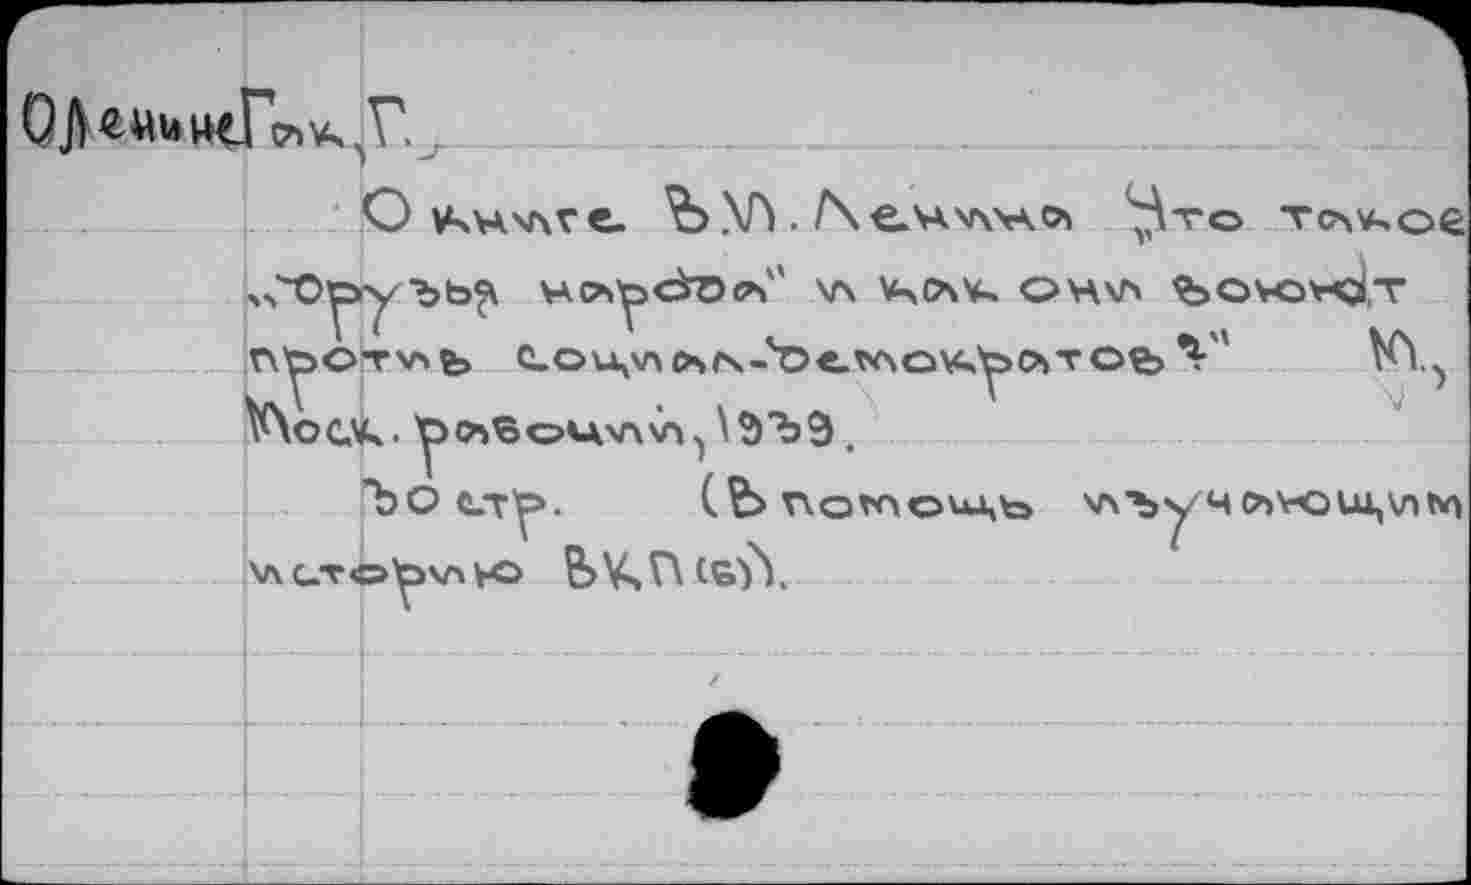 О Ленине Гак, Г.
О книге В.И. Ленина Что такое
"Друзья народа" и как они воюют
против социал-демократов?" М.,
Моск. рабочий, 1939.
30 стр. (В помощь изучающим
историю ВКП(б)).